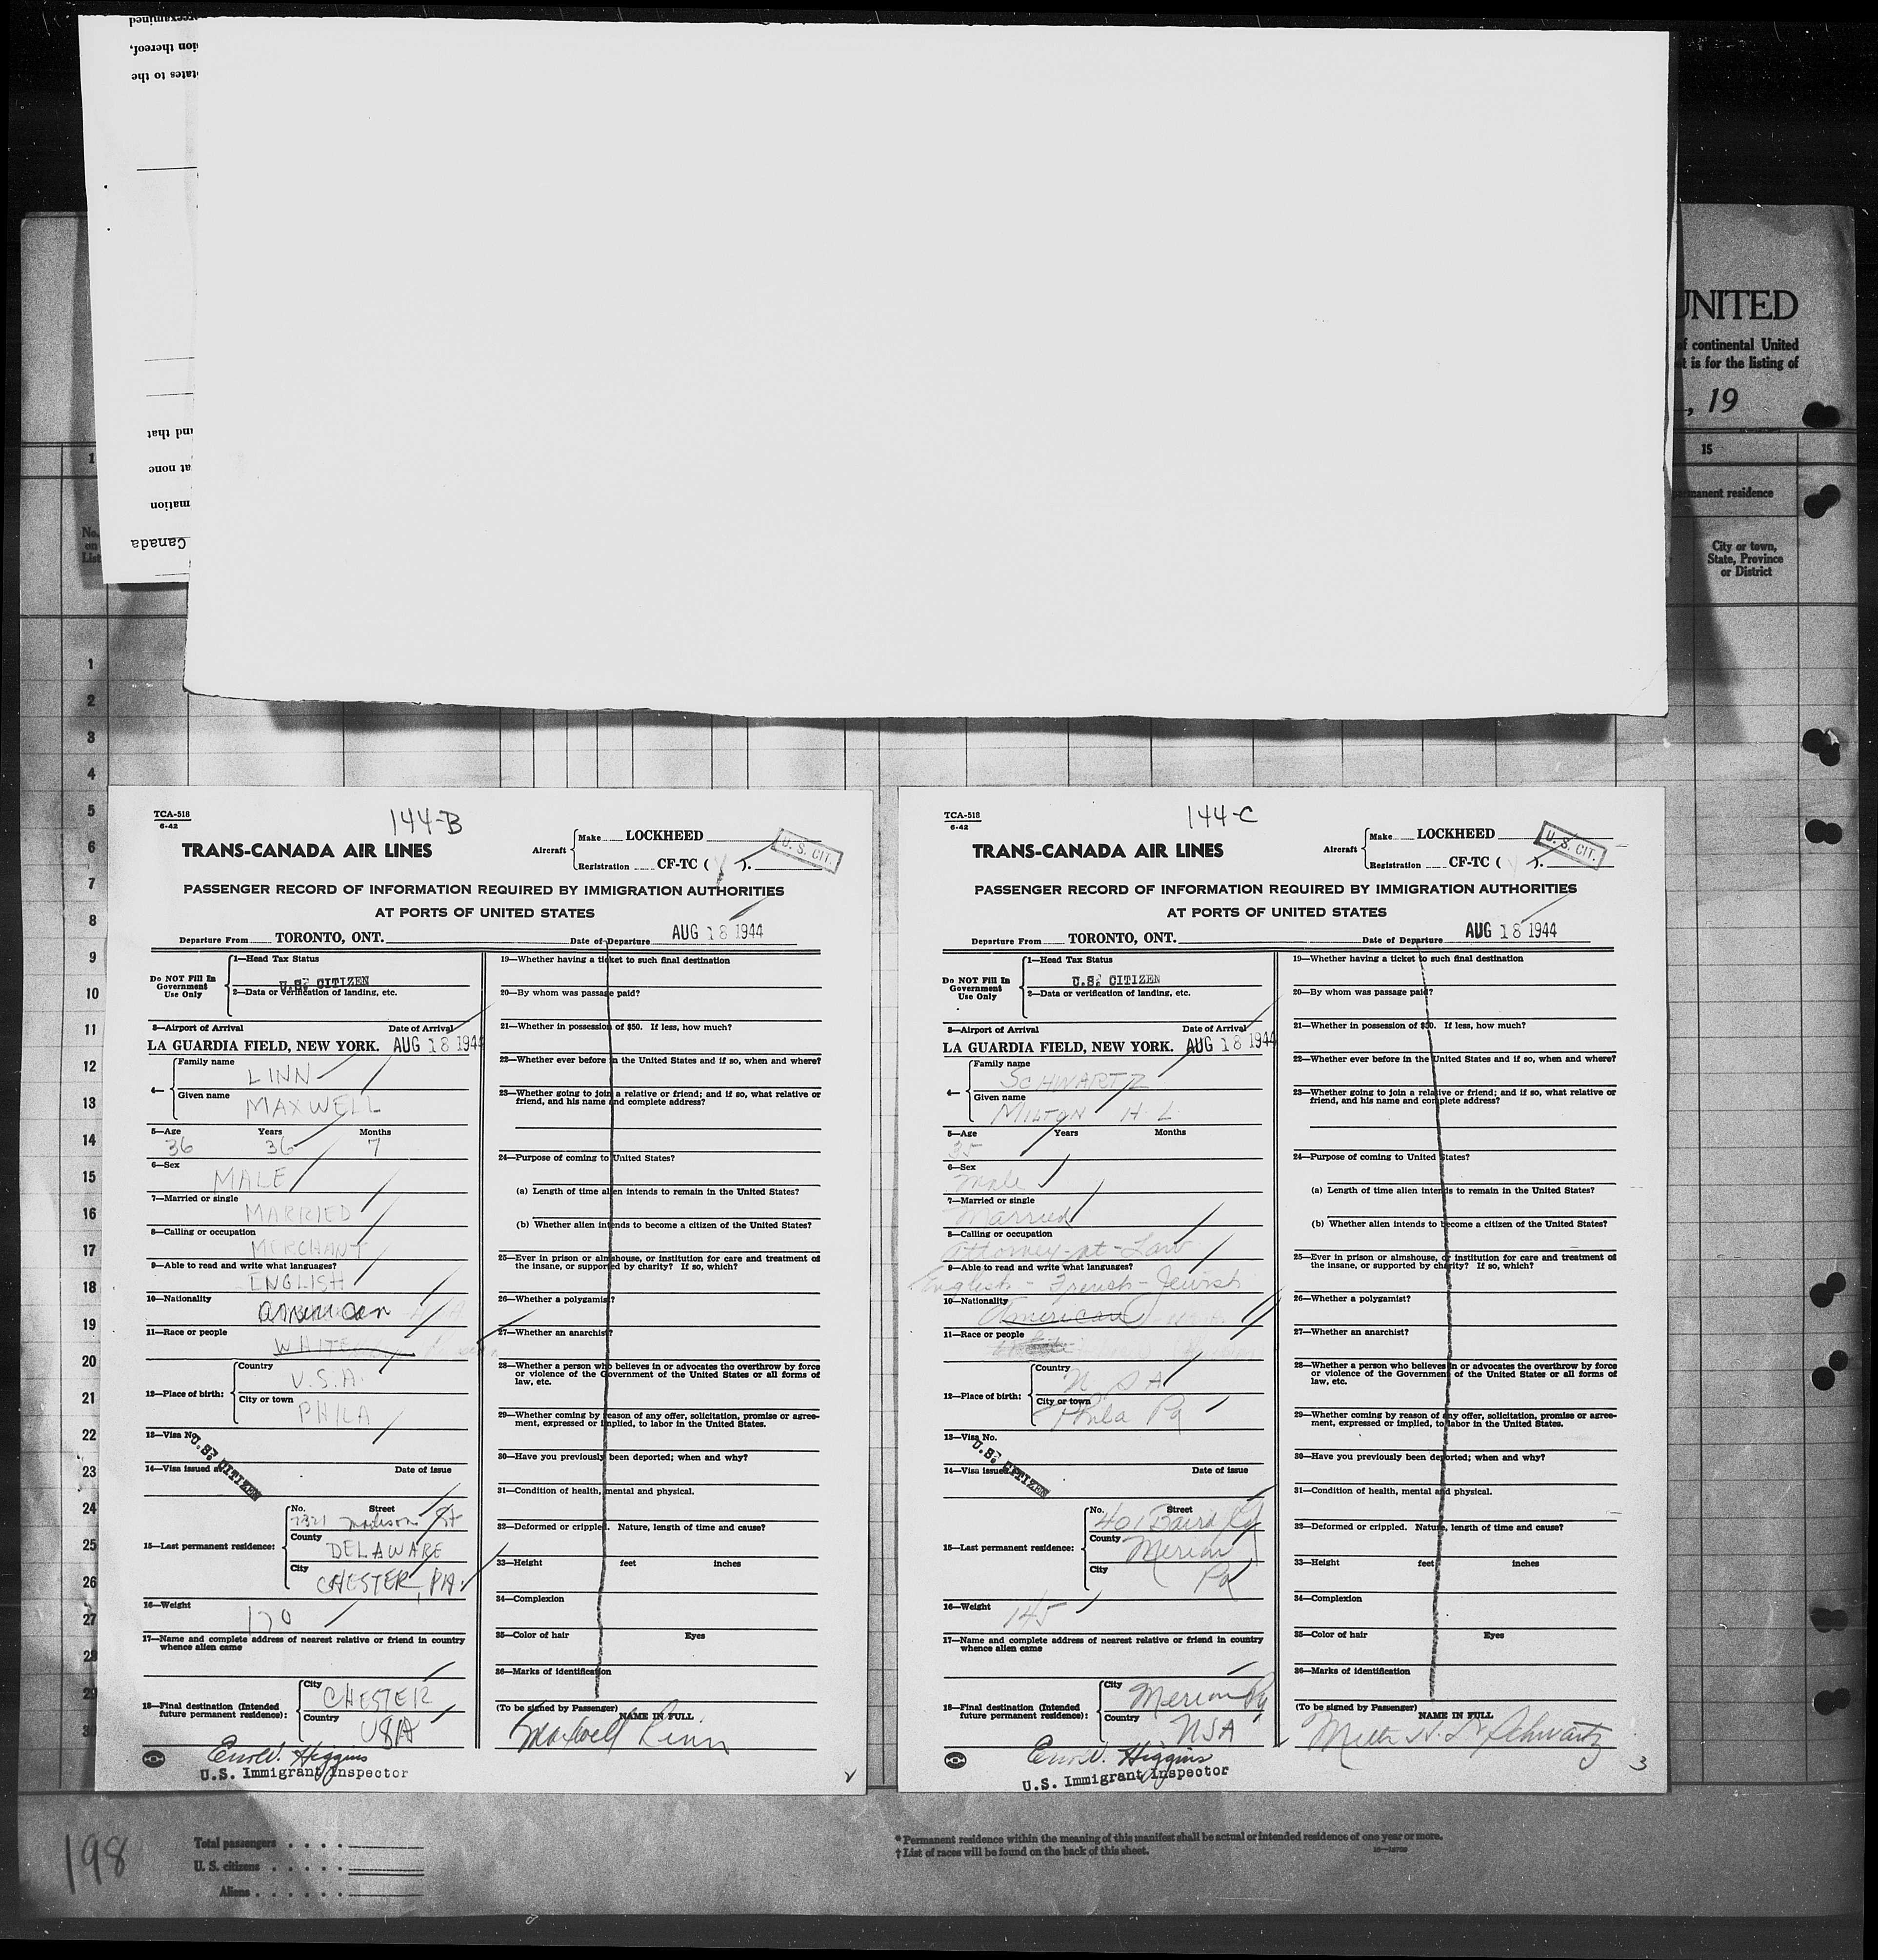 UNITED
of continental United
is for the listing of
, 19
15
permanent residence
City or town,
State, Province
or District
No.
on
List
tates to the
ion thereof,
und that
at none
mation
Canada
1
2
3
4
5
6
7
8
9
10
11
12
13
14
15
16
17
18
19
20
21
22
23
24
25
26
27
28
29
30
TCA-518
6-42
144-B
TRANS-CANADA AIR LINES
Aircraft
Make LOCKHEED
Registration CF-TC ( Y ).
U. S. CIT.
PASSENGER RECORD OF INFORMATION REQUIRED BY IMMIGRATION AUTHORITIES
AT PORTS OF UNITED STATES
Departure From TORONTO, ONT. Date of Departure AUG 18 1944
Do NOT Fill In
Government
Use Only
1—Head Tax Status
U.S. CITIZEN
2—Data or verification of landing, etc.
3—Airport of Arrival Date of Arrival
LA GUARDIA FIELD, NEW YORK. AUG 18 1944
4—
Family name
LINN
Given name
MAXWELL
5—Age Years Months
36 36 7
6—Sex
MALE
7—Married or single
MARRIED
8—Calling or occupation
MERCHANT
9—Able to read and write what languages?
ENGLISH
10—Nationality
American
11—Race or people
WHITE
12—Place of birth:
Country
U.S.A.
City or town
PHILA
13—Visa No.
U.S. CITIZEN
14—Visa issued at Date of issue
15—Last permanent residence:
No. Street
2321 Madison St
County
DELAWARE
City
CHESTER, PA
16—Weight
170
17—Name and complete address of nearest relative or friend in country
whence alien came
18—Final destination (Intended
future permanent residence):
City
CHESTER
Country
USA
Higgins
U.S. Immigrant Inspector
19—Whether having a ticket to such final destination
20—By whom was passage paid?
21—Whether in possession of $50. If less, how much?
22—Whether ever before in the United States and if so, when and where?
23—Whether going to join a relative or friend; and if so, what relative or
friend, and his name and complete address?
24—Purpose of coming to United States?
(a) Length of time alien intends to remain in the United States?
(b) Whether alien intends to become a citizen of the United States?
25—Ever in prison or almshouse, or institution for care and treatment of
the insane, or supported by charity? If so, which?
26—Whether a polygamist?
27—Whether an anarchist?
28—Whether a person who believes in or advocates the overthrow by force
or violence of the Government of the United States or all forms of
law, etc.
29—Whether coming by reason of any offer, solicitation, promise or agree-
ment, expressed or implied, to labor in the United States.
30—Have you previously been deported; when and why?
31—Condition of health, mental and physical.
32—Deformed or crippled. Nature, length of time and cause?
33—Height feet inches
34—Complexion
35—Color of hair Eyes
36—Marks of identification
(To be signed by Passenger)
NAME IN FULL
Maxwell Linn
TCA-518
6-42
144-C
TRANS-CANADA AIR LINES
Aircraft
Make LOCKHEED
Registration CF-TC ( Y ).
U. S. CIT.
PASSENGER RECORD OF INFORMATION REQUIRED BY IMMIGRATION AUTHORITIES
AT PORTS OF UNITED STATES
Departure From TORONTO, ONT. Date of Departure AUG 18 1944
Do NOT Fill In
Government
Use Only
1—Head Tax Status
U.S. CITIZEN
2—Data or verification of landing, etc.
3—Airport of Arrival Date of Arrival
LA GUARDIA FIELD, NEW YORK. AUG 18 1944
4—
Family name
SCHWARTZ
Given name
MILTON H L
5—Age Years Months
35
6—Sex
Male
7—Married or single
Married
8—Calling or occupation
Attorney-at-Law
9—Able to read and write what languages?
English - French - Jewish
10—Nationality
American
11—Race or people
12—Place of birth:
Country
U S A
City or town
Phila Pa
13—Visa No.
U.S. CITIZEN
14—Visa issued Date of issue
15—Last permanent residence:
No. Street
401 Baird Rd
County
Merion
City
Pa
16—Weight
145
17—Name and complete address of nearest relative or friend in country
whence alien came
18—Final destination (Intended
future permanent residence):
City
Merion Pa
Country
USA
Higgins
U.S. Immigrant Inspector
19—Whether having a ticket to such final destination
20—By whom was passage paid?
21—Whether in possession of $50. If less, how much?
22—Whether ever before in the United States and if so, when and where?
23—Whether going to join a relative or friend; and if so, what relative or
friend, and his name and complete address?
24—Purpose of coming to United States?
(a) Length of time alien intends to remain in the United States?
(b) Whether alien intends to become a citizen of the United States?
25—Ever in prison or almshouse, or institution for care and treatment of
the insane, or supported by charity? If so, which?
26—Whether a polygamist?
27—Whether an anarchist?
28—Whether a person who believes in or advocates the overthrow by force
or violence of the Government of the United States or all forms of
law, etc.
29—Whether coming by reason of any offer, solicitation, promise or agree-
ment, expressed or implied, to labor in the United States.
30—Have you previously been deported; when and why?
31—Condition of health, mental and physical.
32—Deformed or crippled. Nature, length of time and cause?
33—Height feet inches
34—Complexion
35—Color of hair Eyes
36—Marks of identification
(To be signed by Passenger)
NAME IN FULL
Milton H. L. Schwartz
3
198
Total passengers
U. S. citizens
Aliens
* Permanent residence within the meaning of this manifest shall be actual or intended residence of one year or more.
† List of races will be found on the back of this sheet.